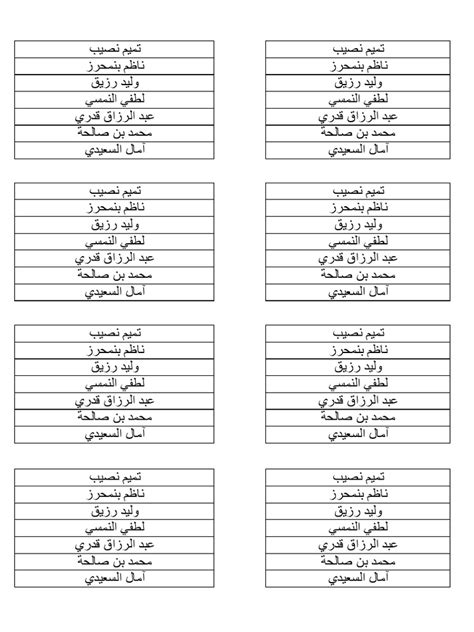 تميم نصيب
ناظم بنمحرز
وليد رزيق
لطفي النمسي
عبد الرزاق قدري
محمد بن صالحة
آمال السعيدي
تميم نصيب
ناظم بنمحرز
وليد رزيق
لطفي النمسي
عبد الرزاق قدري
محمد بن صالحة
آمال السعيدي
تميم نصيب
ناظم بنمحرز
وليد رزيق
لطفي النمسي
عبد الرزاق قدري
محمد بن صالحة
آمال السعيدي
تميم نصيب
ناظم بنمحرز
وليد رزيق
لطفي النمسي
عبد الرزاق قدري
محمد بن صالحة
آمال السعيدي
تميم نصيب
ناظم بنمحرز
وليد رزيق
لطفي النمسي
عبد الرزاق قدري
محمد بن صالحة
آمال السعيدي
تميم نصيب
ناظم بنمحرز
وليد رزيق
لطفي النمسي
عبد الرزاق قدري
محمد بن صالحة
آمال السعيدي
تميم نصيب
ناظم بنمحرز
وليد رزيق
لطفي النمسي
عبد الرزاق قدري
محمد بن صالحة
آمال السعيدي
تميم نصيب
ناظم بنمحرز
وليد رزيق
لطفي النمسي
عبد الرزاق قدري
محمد بن صالحة
آمال السعيدي